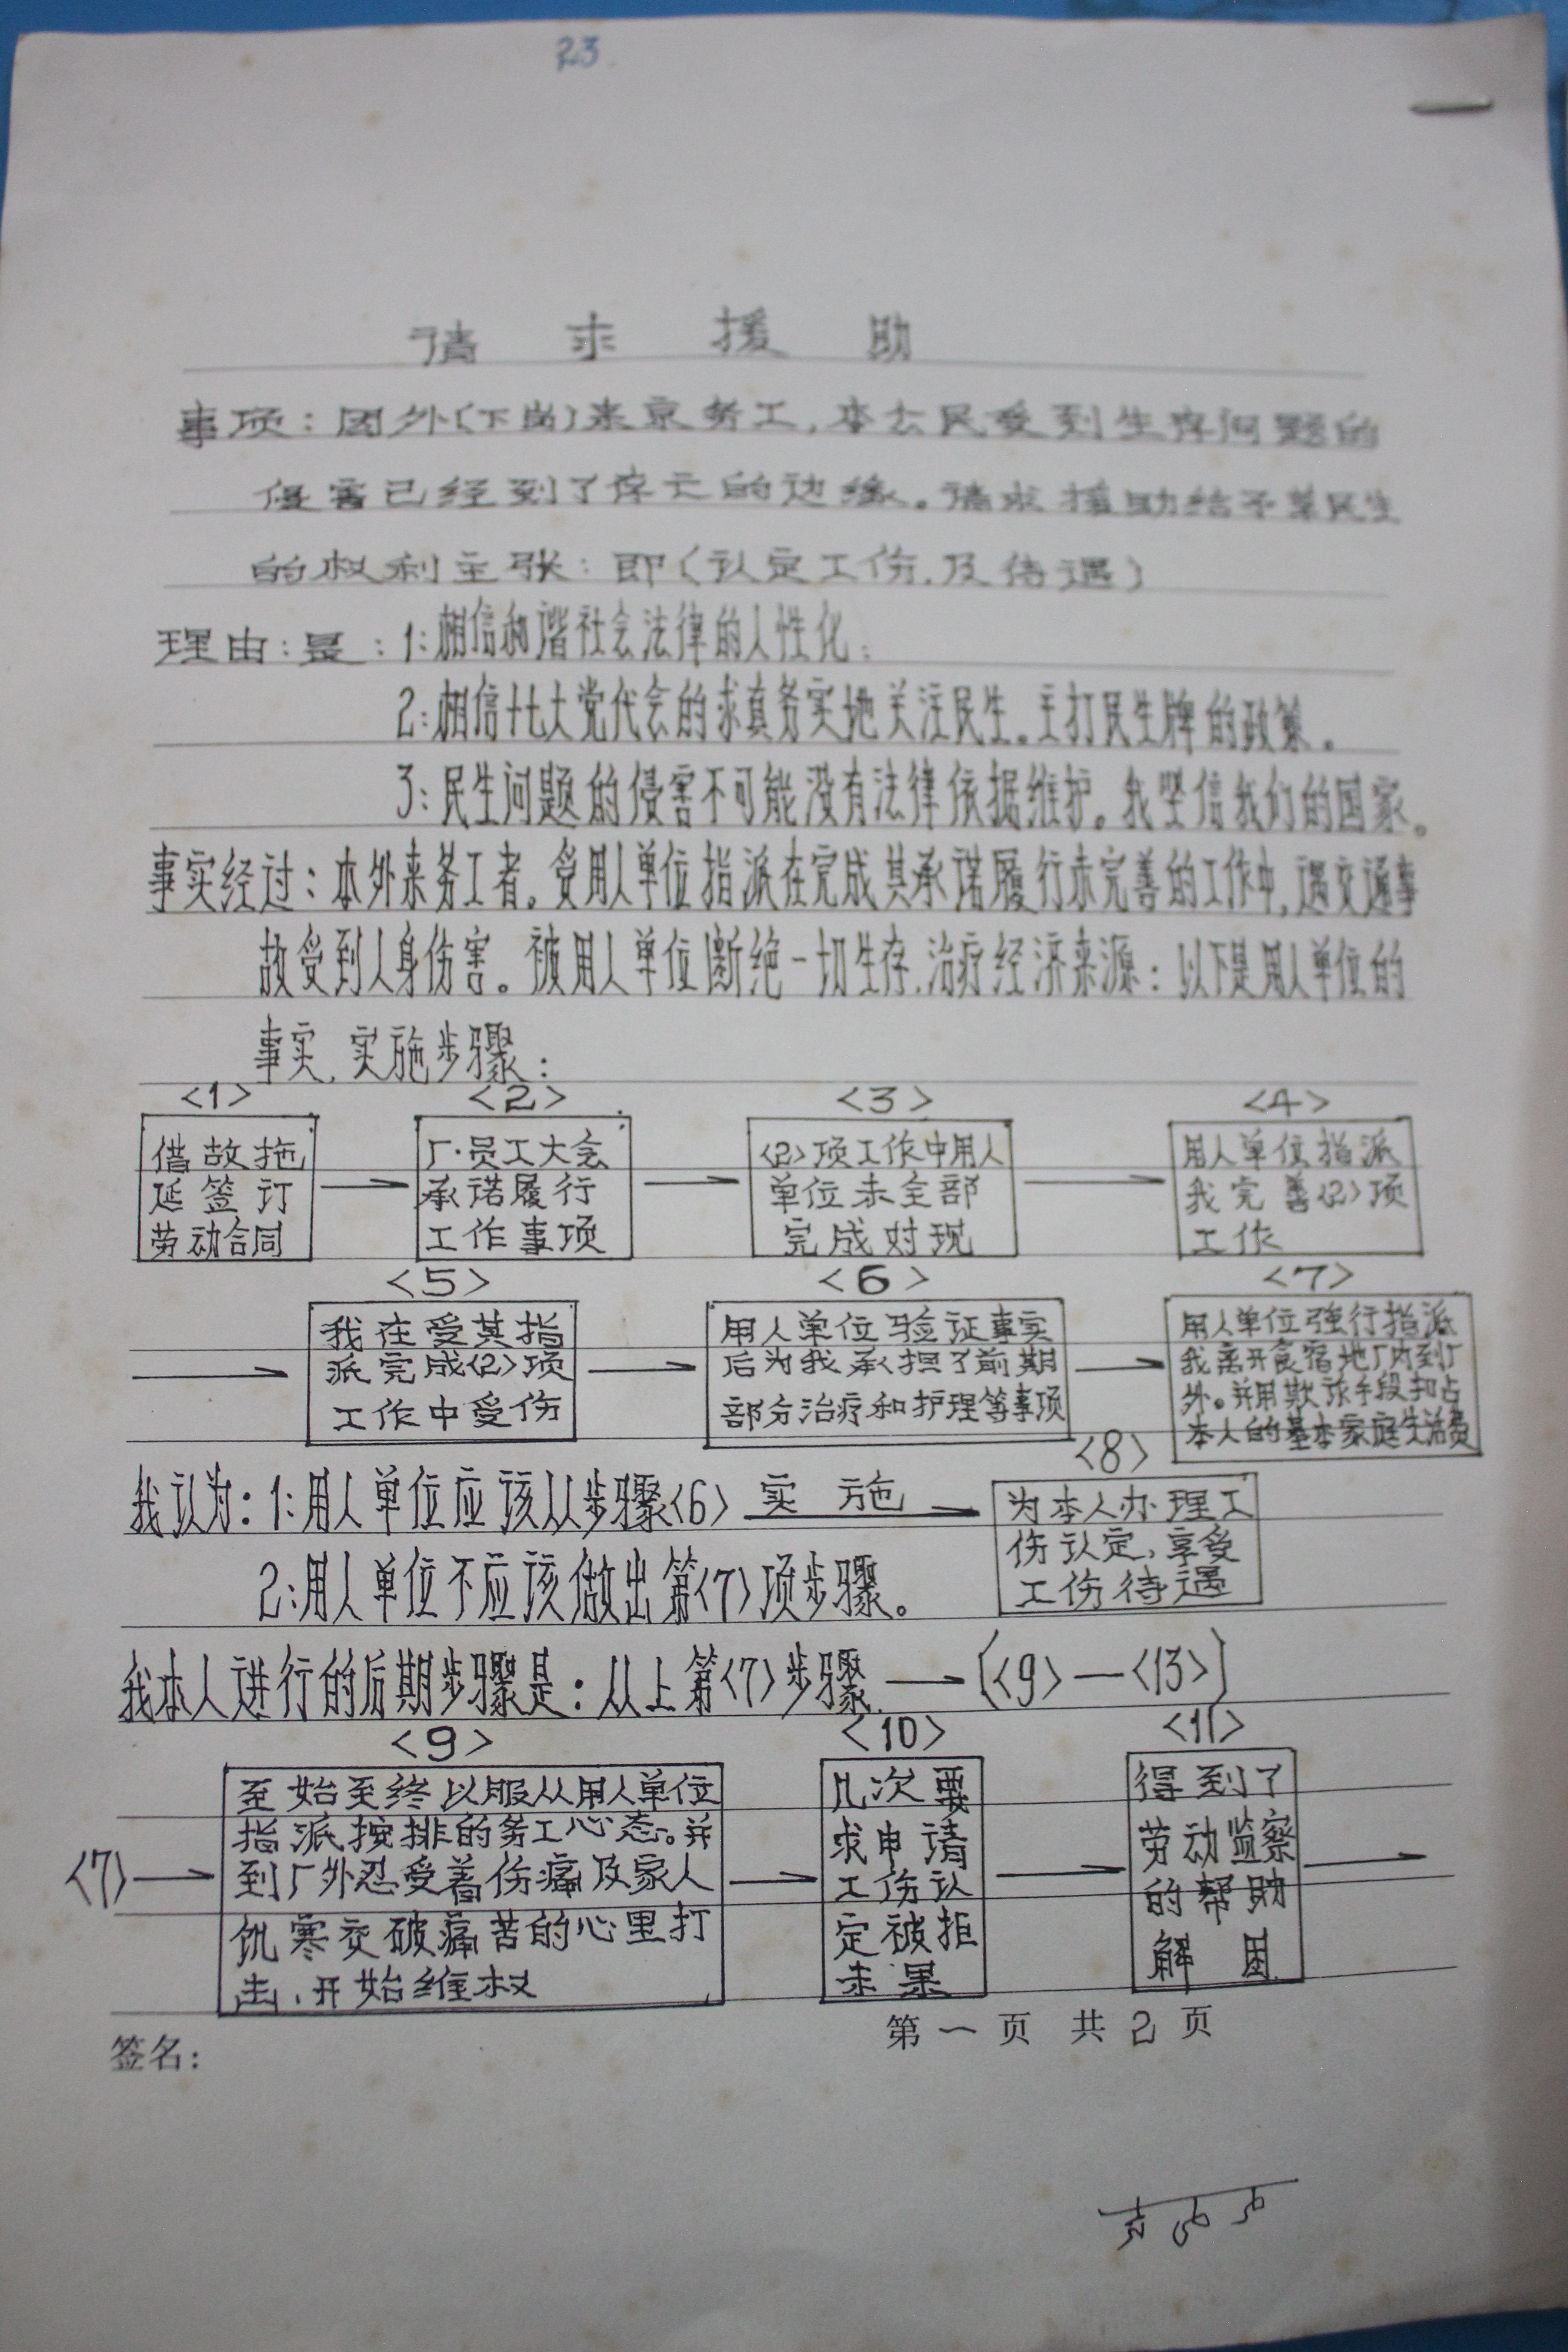 23.
请求援助
事项：因外(下岗)来京务工，本公民受到生存问题的
侵害已经到了存亡的边缘。请求援助给予某民生
的权利主张：即(认定工伤.及待遇)
理由：是：1:相信和谐社会法律的人性化；
2:相信十七大党代会的求真务实地关注民生。主打民生牌的政策。
3:民生问题的侵害不可能没有法律依据维护。我坚信我们的国家。
事实经过：本外来务工者。受用人单位指派在完成其承诺履行未完善的工作中，遇交通事
故受到人身伤害。被用人单位断绝一切生存.治疗经济来源：以下是用人单位的
事实.实施步骤：
<1> <2> <3> <4>
借故拖
延签订
劳动合同
厂.员工大会
承诺履行
工作事项
<2>项工作中用人
单位未全部
完成对现
用人单位指派
我完善<2>项
工作
<5> <6> <7>
我在受其指
派完成<2>项
工作中受伤
用人单位验证事实
后为我承担了前期
部分治疗和护理等事项
用人单位强行指派
我离开食宿地厂内到厂
外。并用欺诈手段扣占
本人的基本家庭生活费
<8>
我认为：1:用人单位应该从步骤<6> 实施
为本人办理工
伤认定，享受
工伤待遇
2:用人单位不应该做出第<7>项步骤。
我本人进行的后期步骤是：从上第<7>步骤 (<9>—<13>)
<9> <10> <11>
<7>
至始至终以服从用人单位
指派按排的务工心态。并
到厂外忍受着伤痛及家人
饥寒交破痛苦的心里打
击，开始维权
几次要
求申请
工伤认
定被拒
未果
得到了
劳动监察
的帮助
解困
签名： 第一页 共2页